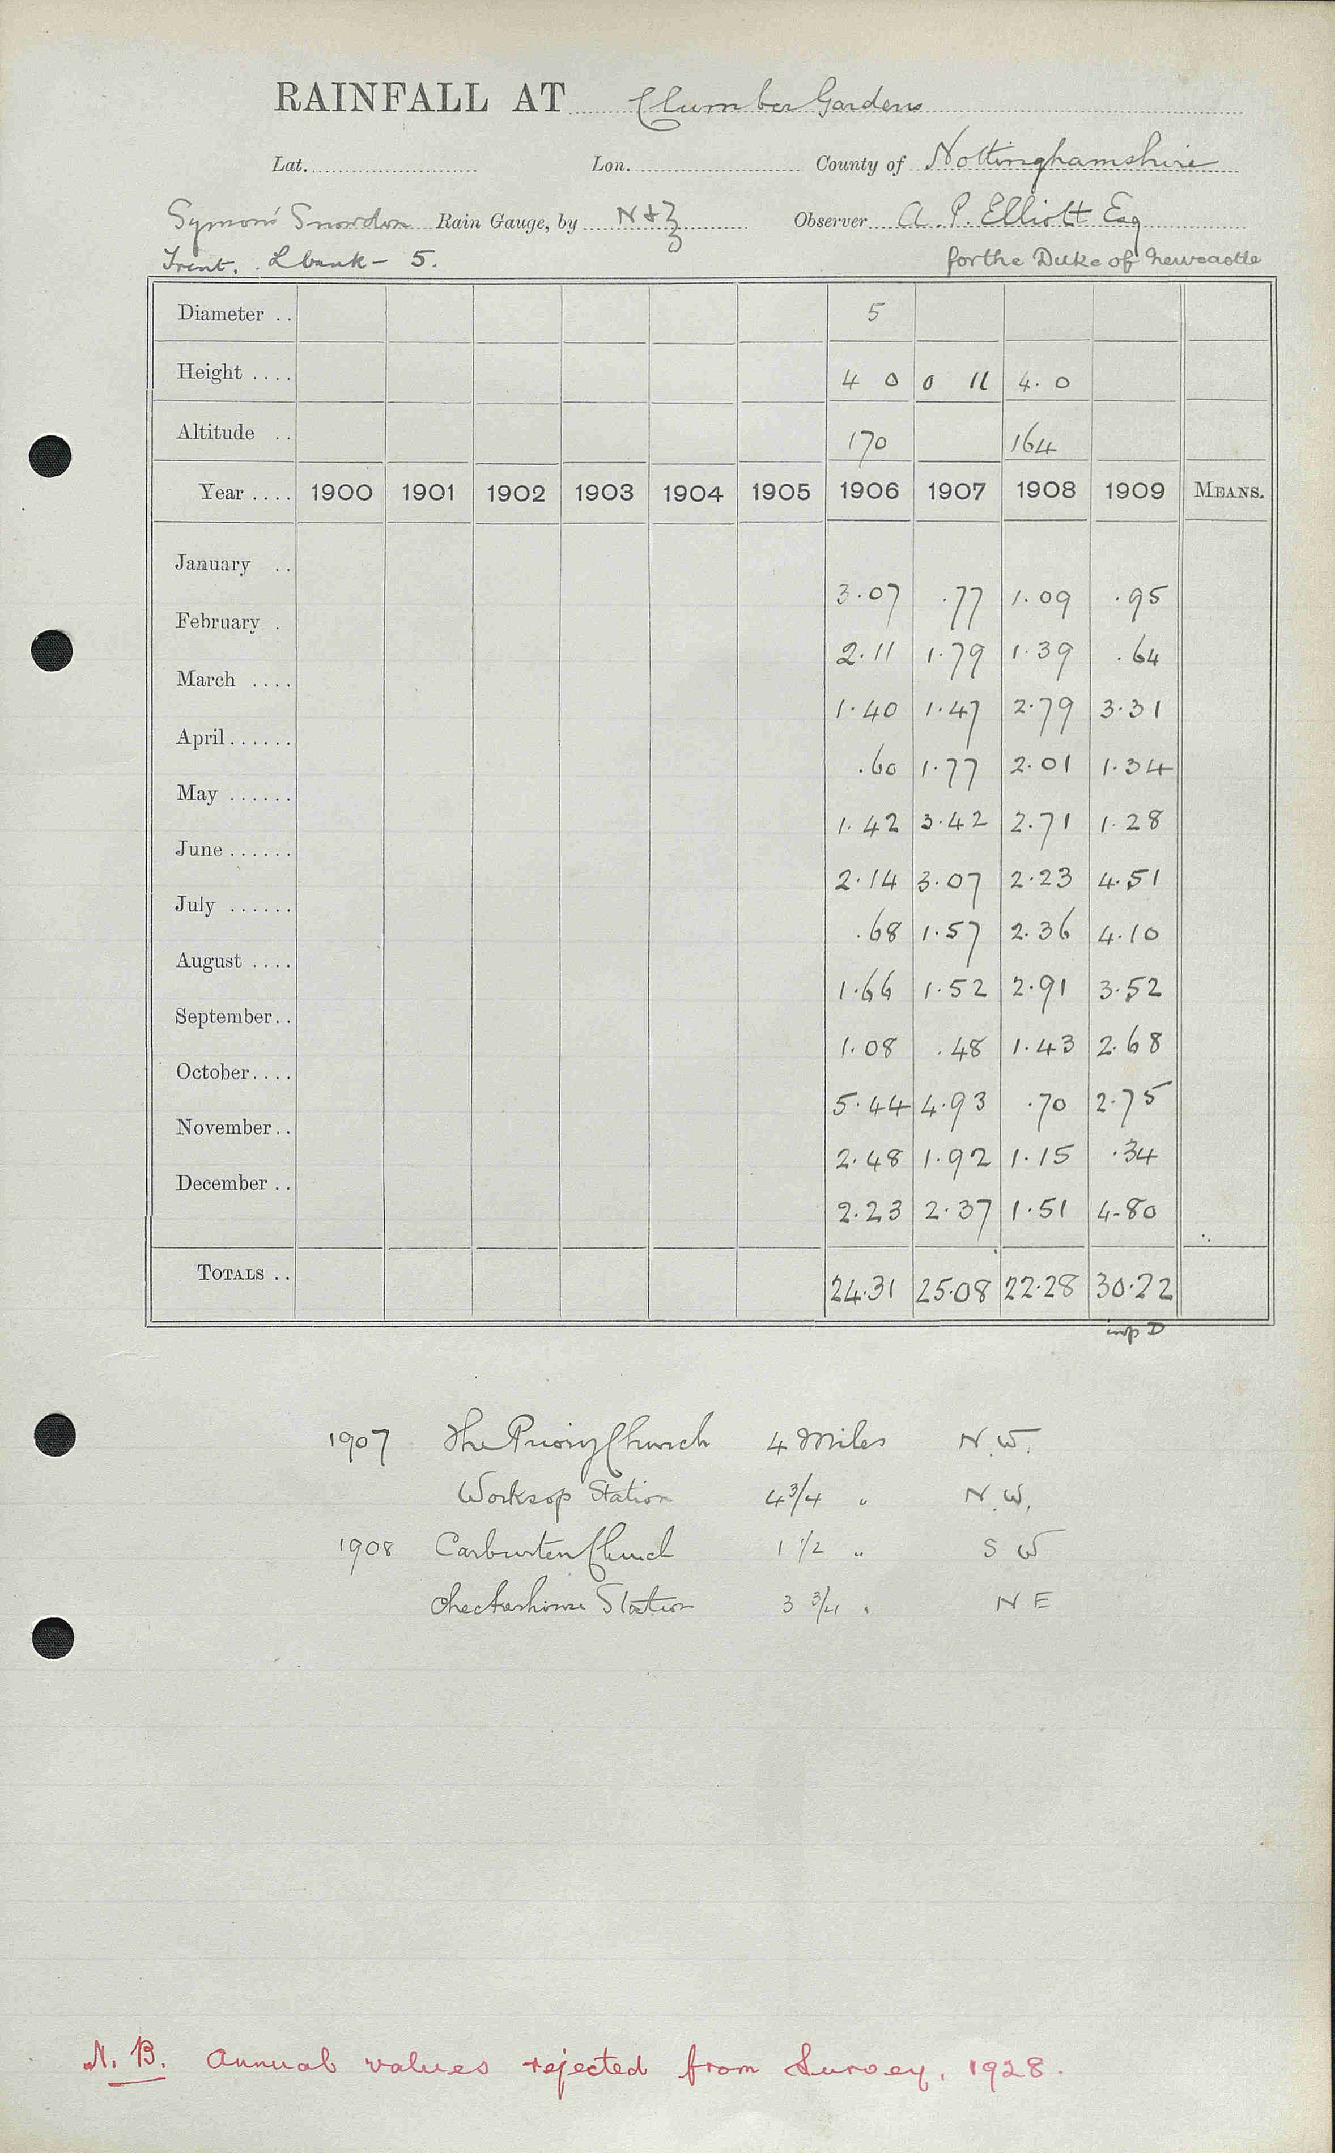 RAINFALL AT Clumber Gardens
Lat. Lon. County of Nottinghamshire
Symons' Snowdon Rain Gauge, by N & Z Observer A. P. Elliott Esq
Trent. L bank - 5. for the Duke of Newcastle
Diameter .. 5
Height .... 4 0 0 11 4. 0
Altitude .. 170 164
Year .... 1900 1901 1902 1903 1904 1905 1906 1907 1908 1909 MEANS.
January .. 3.07 .77 1.09 .95
February . 2.11 1.79 1.39 .64
March .... 1.40 1.47 2.79 3.31
April ...... .60 1.77 2.01 1.34
May ...... 1.42 3.42 2.71 1.28
June ...... 2.14 3.07 2.23 4.51
July ...... .68 1.57 2.36 4.10
August .... 1.66 1.52 2.91 3.52
September.. 1.08 .48 1.43 2.68
October.... 5.44 4.93 .70 2.75
November.. 2.48 1.92 1.15 .34
December .. 2.23 2.37 1.51 4.80
TOTALS .. 24.31 25.08 22.28 30.22
1907 The Priory Church 4 Miles N.W.
Worksop Station 4 3/4 " N.W.
1908 Carburton Church 1 1/2 " S W
Checkerhouse Station 3 3/4 " N E
N.B. Annual values rejected from Survey, 1928.